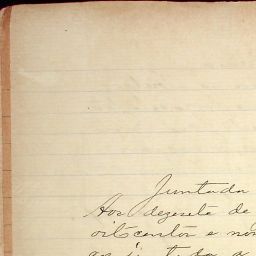 Juntada
Aos dezesete de
oitocentos e nov